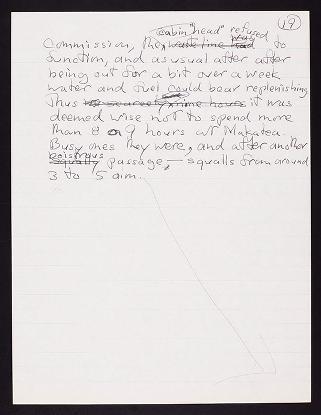 19
cabin "head" refused
Commission, the waste line had was to
function, and as usual after after
being out for a bit over a week
water and fuel could bear replenishing
Thus it was
deemed wise not to spend more
than 8 or 9 hours at Makatea.
Busy ones they were, and after another
boistrous
squally passage — squalls from around
3 to 5 a.m.